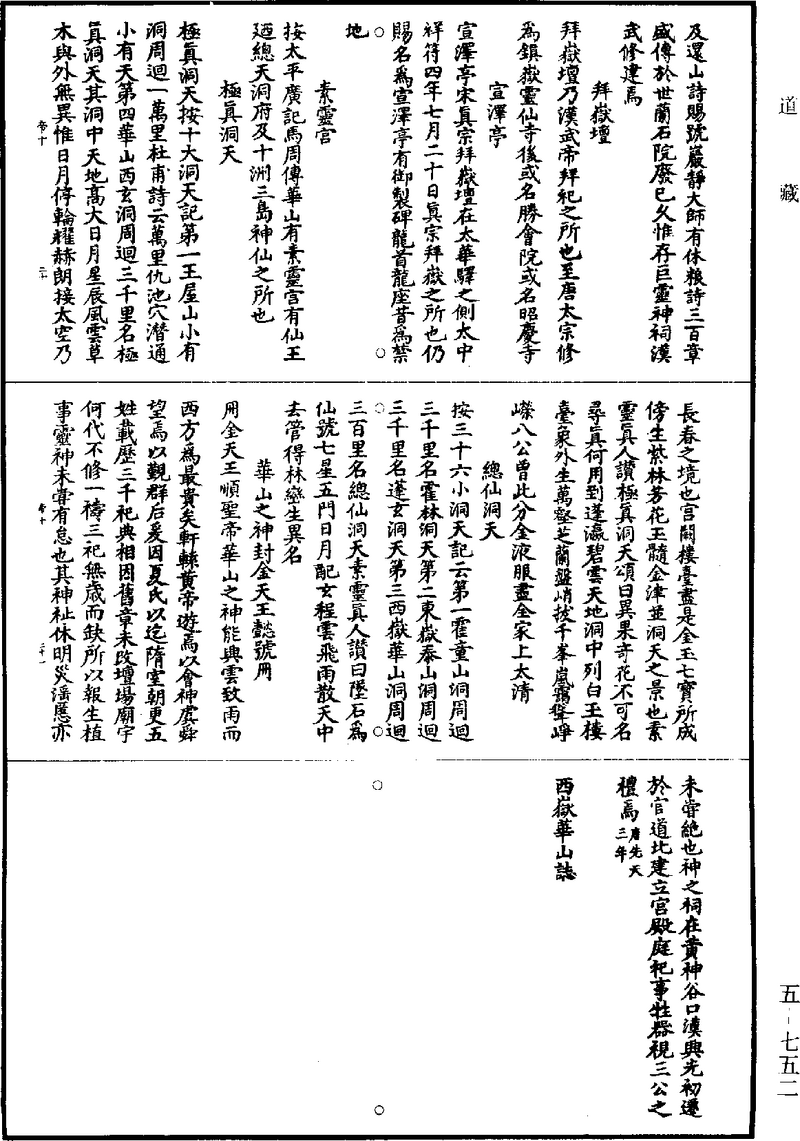 道藏
五-七五二
及還山詩賜號巖靜大師有休粮詩三百章
盛傳於世蘭石院廢已久惟存巨靈神祠漢
武修建焉
拜嶽壇
拜嶽壇乃漢武帝拜祀之所也至唐太宗修
爲鎮嶽靈仙寺後或名勝會院或名昭慶寺
宣澤亭
宣澤亭宋真宗拜嶽壇在太華驛之側太中
祥符四年七月二十日真宗拜嶽之所也仍
賜名爲宣澤亭有御製碑龍首龍座昔爲禁
地
素靈宮
按太平廣記馬周傳華山有素靈宮有仙王
廼總天洞府及十洲三島神仙之所也
極真洞天
極真洞天按十大洞天記第一王屋山小有
洞周迴一萬里杜甫詩云萬里仇池穴潛通
小有天第四華山西玄洞周迴三千里名極
真洞天其洞中天地高大日月星辰風雲草
木與外無異惟日月停輪耀赫朗接太空乃
卷十 二十
長春之境也宮闕樓臺盡是金玉七寶所成
傍生紫林芳花玉髓金津並洞天之景也素
靈真人讚極真洞天頌曰異果奇花不可名
尋真何用到蓬瀛碧雲天地洞中列白玉樓
臺象外生萬壑芝蘭盤峭拔千峯嵐靄聳崢
嶸八公曾此分金液服盡全家上太清
總仙洞天
按三十六小洞天記云第一霍童山洞周迴
三千里名霍林洞天第二東嶽泰山洞周迴
三千里名蓬玄洞天第三西嶽華山洞周迴
三百里名總仙洞天素靈真人讚曰墜石爲
仙號七星五門日月配玄程雲飛雨散天中
去管得林巒生異名
華山之神封金天王懿號冊
用金天王順聖帝華山之神能興雲致雨而
西方爲最貴矣軒轅黃帝遊焉以會神虞舜
望焉以覲群后爰因夏氏以迄隋室朝更五
姓載歷三千祀典相因舊章未改壇場廟宇
何代不修一禱三祀無歲而缺所以報生植
事靈神未嘗有怠也其神祉休明災滛慝亦
卷十 二十一
未嘗絶也神之祠在黄神谷口漢興光初遷
於官道北建立宮殿庭祀事牲器視三公之
禮焉唐先天三年
西嶽華山誌